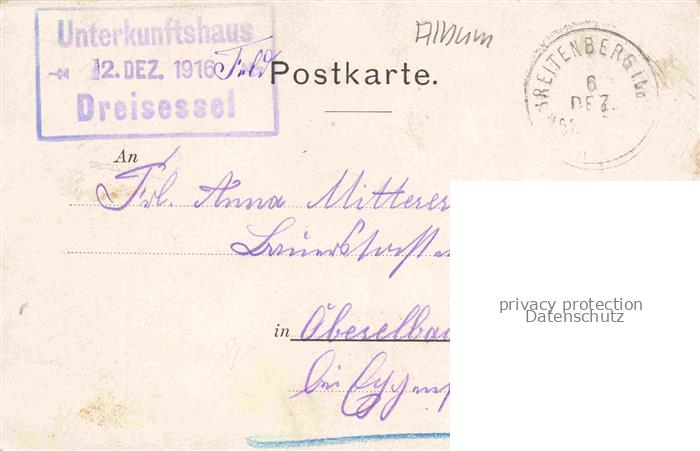 Album
Unterkunftshaus
2. DEZ. 1916
Dreisessel
Feld Postkarte.
BREITENBERG
6
DEZ.
An
Frl. Anna Mitterer
in
bei
privacy protection
Datenschutz